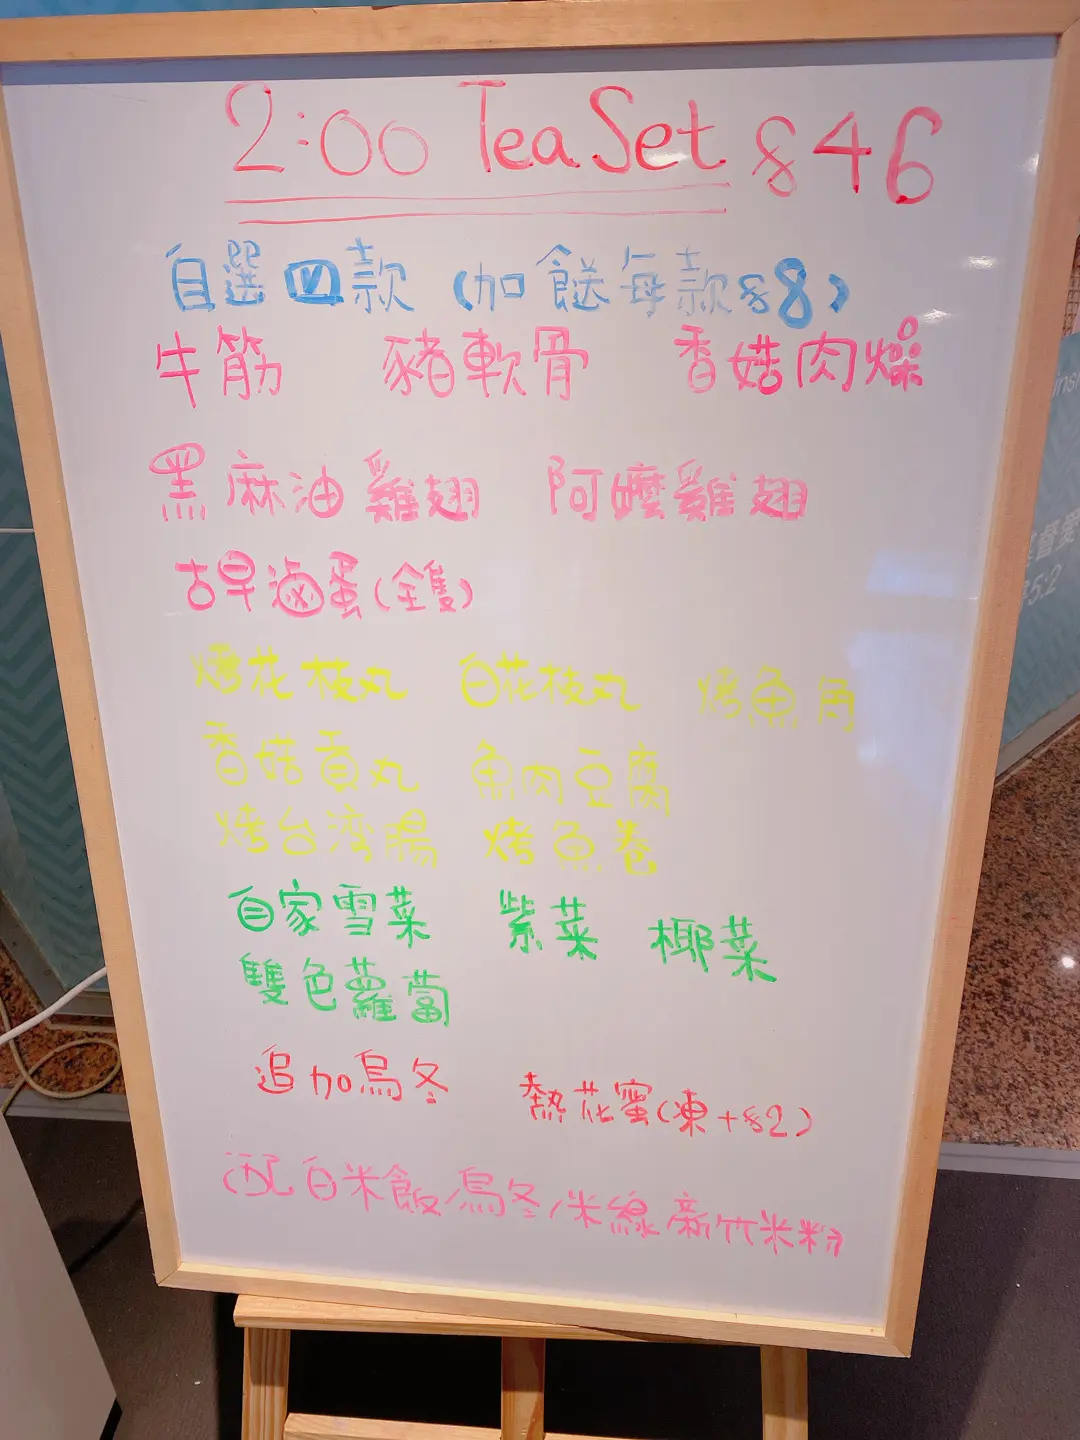 2:00 Tea Set $46
自選四款 (加餸每款$8)
牛筋 豬軟骨 香菇肉燥
黑麻油雞翅 阿嬤雞翅
古早滷蛋(全隻)
烤花枝丸 白花枝丸 烤魚角
香菇貢丸 魚肉豆腐
烤台湾腸 烤魚卷
自家雪菜 紫菜 椰菜
雙色蘿蔔
追加烏冬 熱花蜜(凍+$2)
配 白米飯/烏冬/米線/新竹米粉
督
5:2